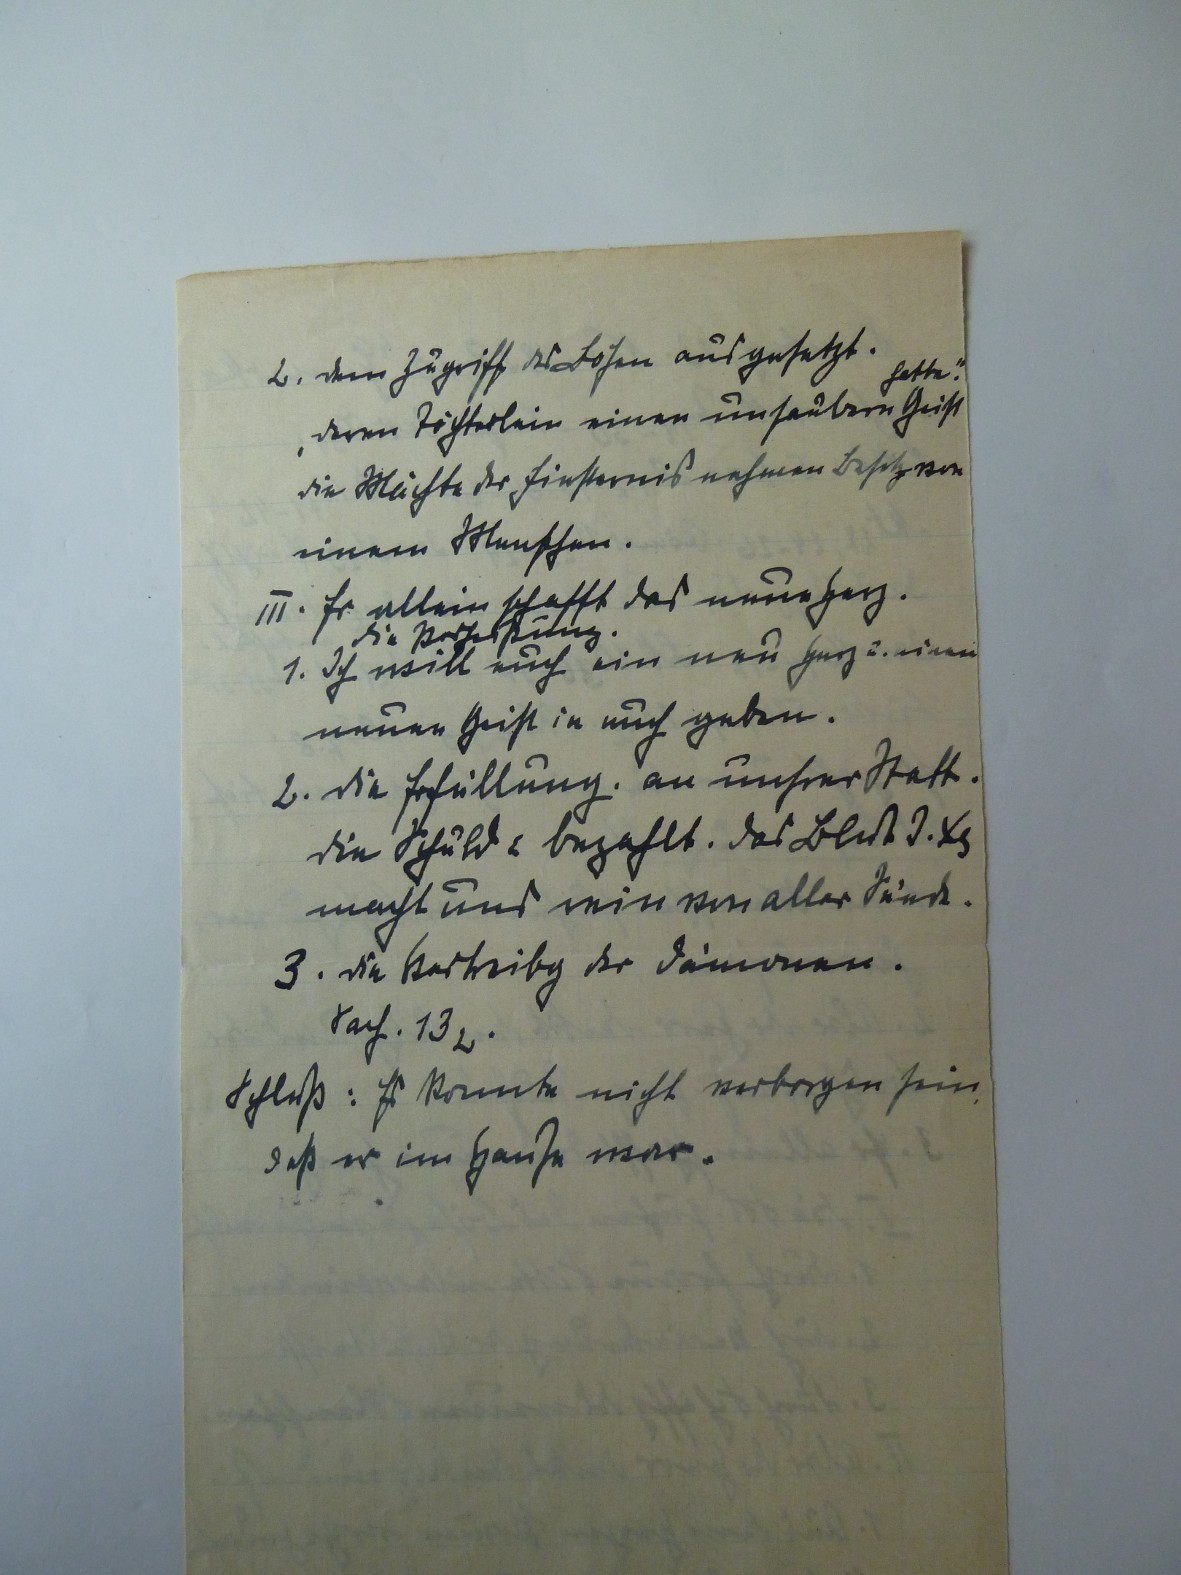 2. dem Zugriff des Bösen ausgesetzt.
hatte."
„deren Töchterlein einen unsaubern Geist
die Mächte der Finsternis nehmen Besitz von
einem Menschen.
III. Er allein schafft das neue Herz.
die Verheißung.
1. Ich will euch ein neu Herz u. einen
neuen Geist in euch geben.
2. die Erfüllung. an unsrer Statt.
die Schuld bezahlt. das Blut J. Xq
macht uns rein von aller Sünde.
3. die Vertreibg der Dämonen.
Sach. 13 2.
Schluß: Es konnte nicht verborgen sein,
daß er im Hause war.